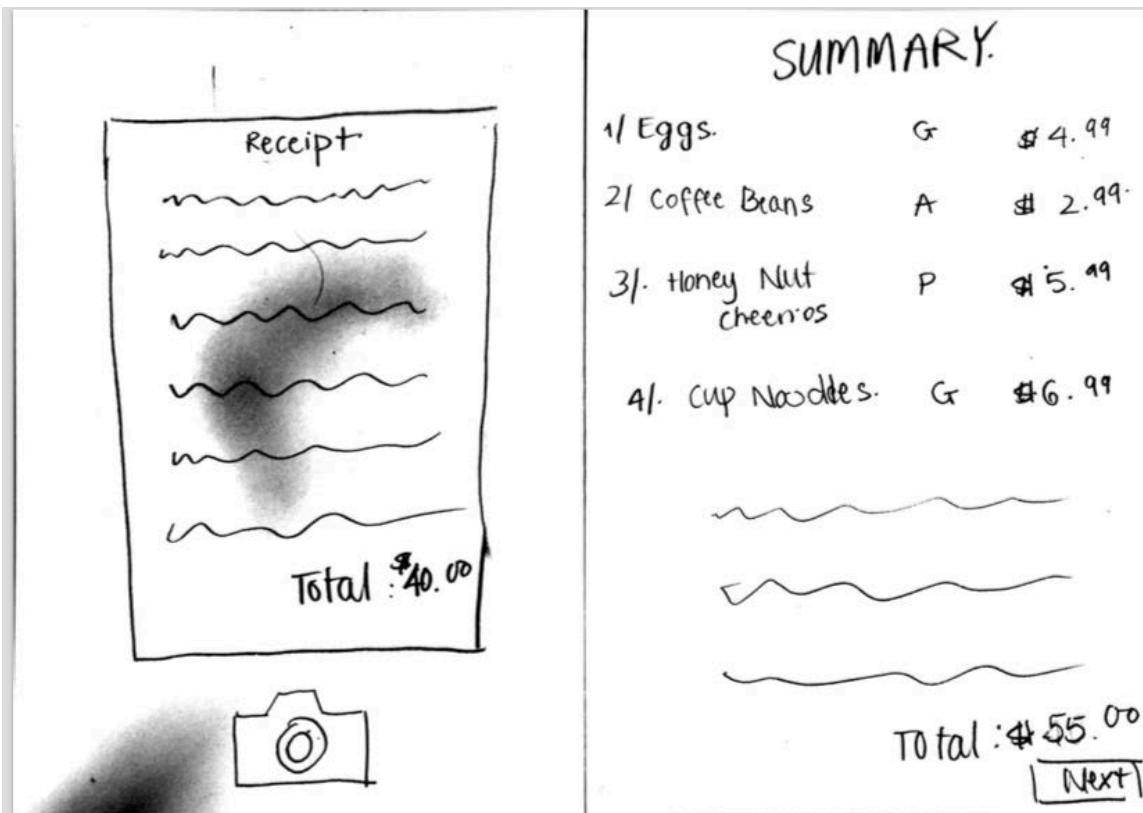 Receipt
Total : $40.00
SUMMARY.
1/ Eggs. G $4.99
2/ Coffee Beans A $2.99.
3/. Honey Nut P $5.99
cheerios
4/. Cup Noodles. G $6.99
Total : $55.00
Next